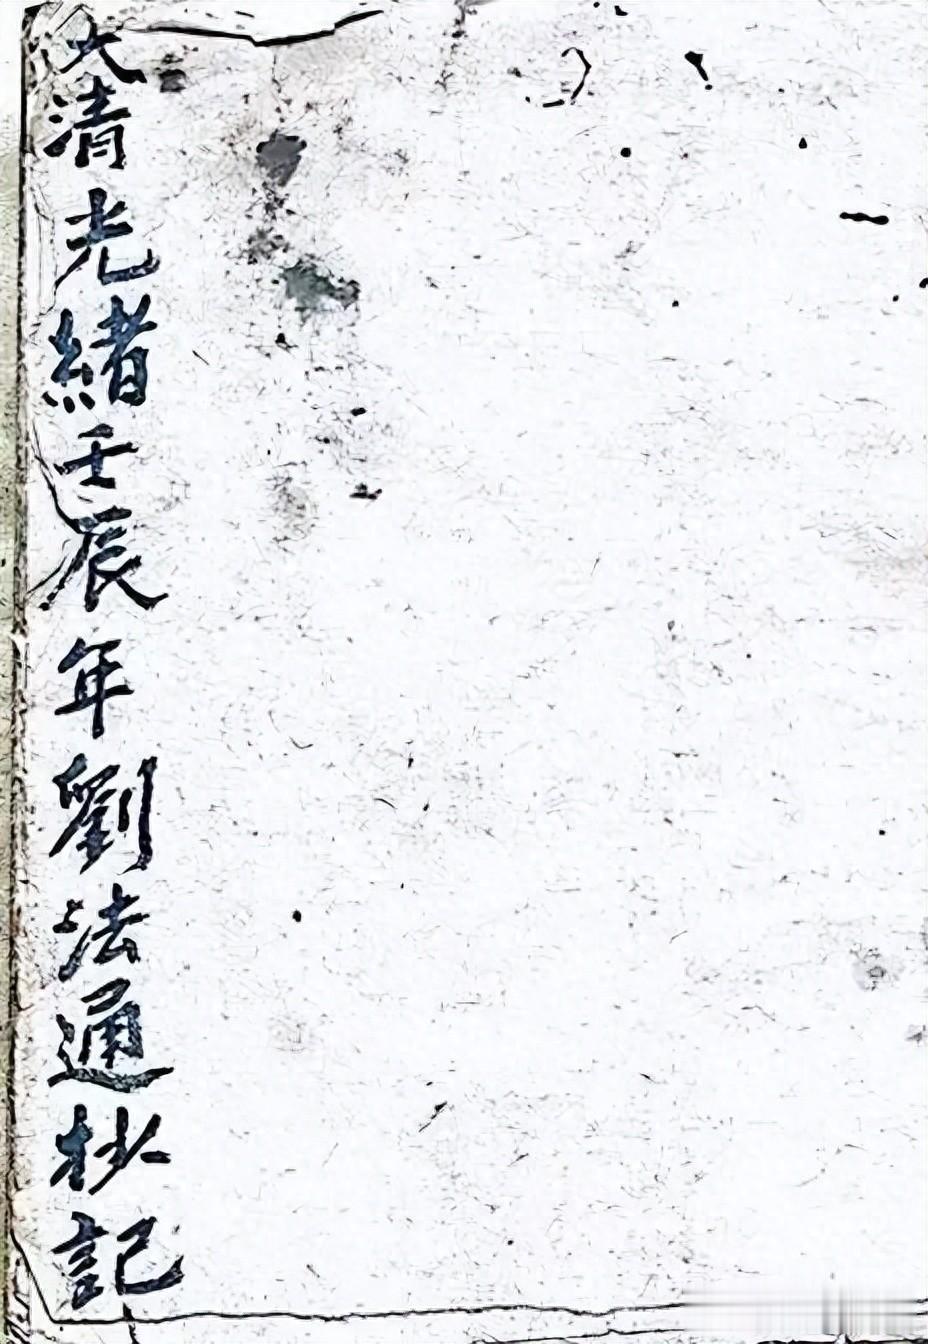 大清光緒壬辰年劉法通抄記